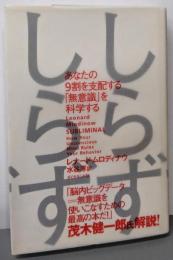 しらずしらず
あなたの
9割を支配する
「無意識」を
科学する
Leonard
Mlodinow
SUBLIMINAL
How Your
Unconscious
Mind Rules
Your Behavior
レナード・ムロディナウ
水谷淳 訳
「脳内ビッグデータ
=無意識を
使いこなすための
最高の本だ!」
茂木健一郎氏解説!